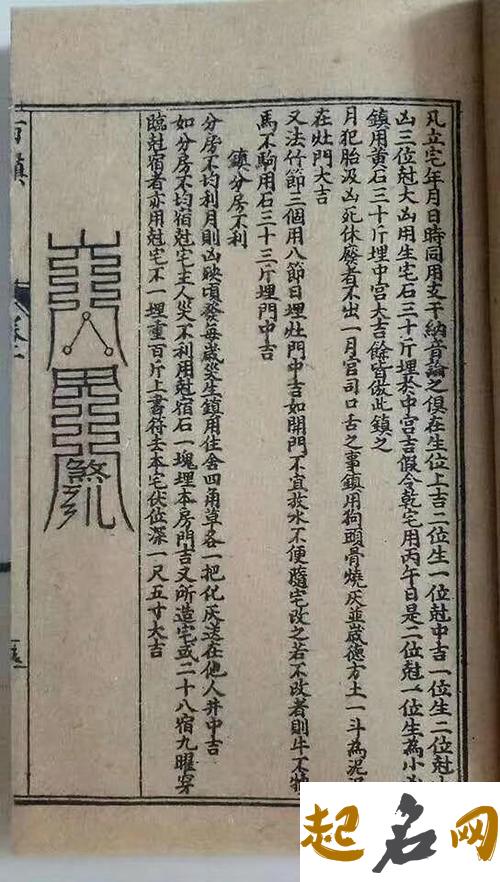 凡立宅年月日時同用支干納音論之俱在生位上吉二位生一位尅中吉一位生二位尅
凶三位尅大凶用生宅石三十斤埋於中宮吉假令乾宅用丙午日是二位尅一位生為小凶
鎮用黃石三十斤埋中宮大吉餘皆倣此鎮之
月犯胎沒凶死休發者不出一月官司口舌之事鎮用狗頭骨燒灰並歲德方土一斗為泥泥
在灶門大吉
又法竹節三個用八節日埋灶門中吉如開門不宜放水不便隨宅改之若不改者則牛不犢
馬不駒用石三十三斤埋門中吉
鎮分房不利
分房不均利月則凶殃頃發每歲災生鎮用住舍四角草各一把化灰送在他人井中吉
如分房不均宿尅宅主人災不利用尅宿石一塊埋本房門吉又所造宅或二十八宿九曜穿
臨尅宿者亦用尅宅不一埋重百斤上書符去本宅伏位深一尺五寸大吉
煞
鎮
卷二
起名网